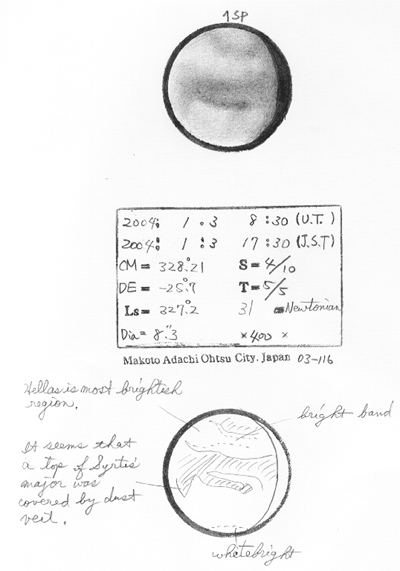 ↑SP
2004: 1 : 3 8 : 30 (U.T.)
2004: 1 : 3 17 : 30 (J.S.T)
CM= 328.°21 S=4/10
DE= -25.°7 T=5/5
Ls= 327.°2 31 Newtonian
Dia= 8."3 ×400 ×
Makoto Adachi Ohtsu City. Japan 03-116
Hellas is most brightish
region.
bright band
It seems that
a top of Syrtis
major was
covered by dust
veil.
white bright